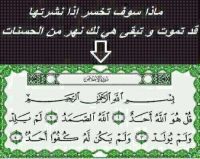 ماذا سوف تخسر إذا نشرتها
قد تموت و تبقى هي لك نهر من الحسنات
بِسْمِ اللَّهِ الرَّحْمَٰنِ الرَّحِيمِ
قُلْ هُوَ اللَّهُ أَحَدٌ ۝ اللَّهُ الصَّمَدُ ۝ لَمْ يَلِدْ
وَلَمْ يُولَدْ ۝ وَلَمْ يَكُن لَّهُ كُفُوًا أَحَدٌ ۝